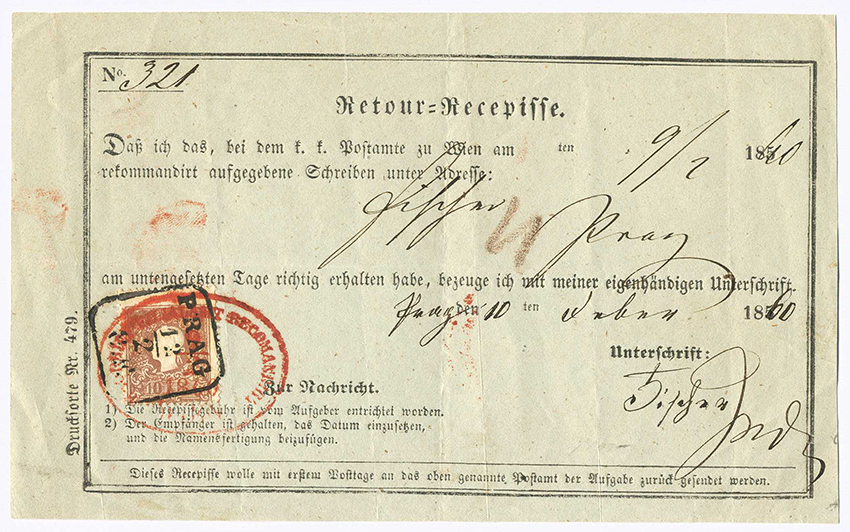 No. 321
Retour=Recepisse.
Daß ich das, bei dem k. k. Postamte zu Wien am 9/2 ten 1860
rekommandirt aufgegebene Schreiben unter Adresse:
Fischer
Prag
am untengesetzten Tage richtig erhalten habe, bezeuge ich mit meiner eigenhändigen Unterschrift.
Prag den 10 ten Feber 1860
Unterschrift:
Fischer
PRAG
12
2
10
Zur Nachricht.
1) Die Recepissegebühr ist vom Aufgeber entrichtet worden.
2) Der Empfänger ist gehalten, das Datum einzusetzen,
und die Namensfertigung beizufügen.
Dieses Recepisse wolle mit erstem Posttage an das oben genannte Postamt der Aufgabe zurück gesendet werden.
Drucksorte Nr. 479.